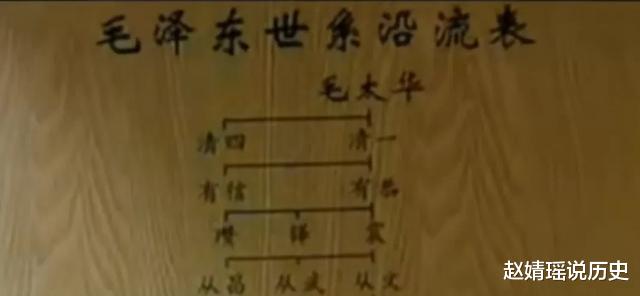 毛泽东世系沿流表
毛太华
清四 清一
有信 有恭
震
从昌 从武 从文
赵婧瑶说历史